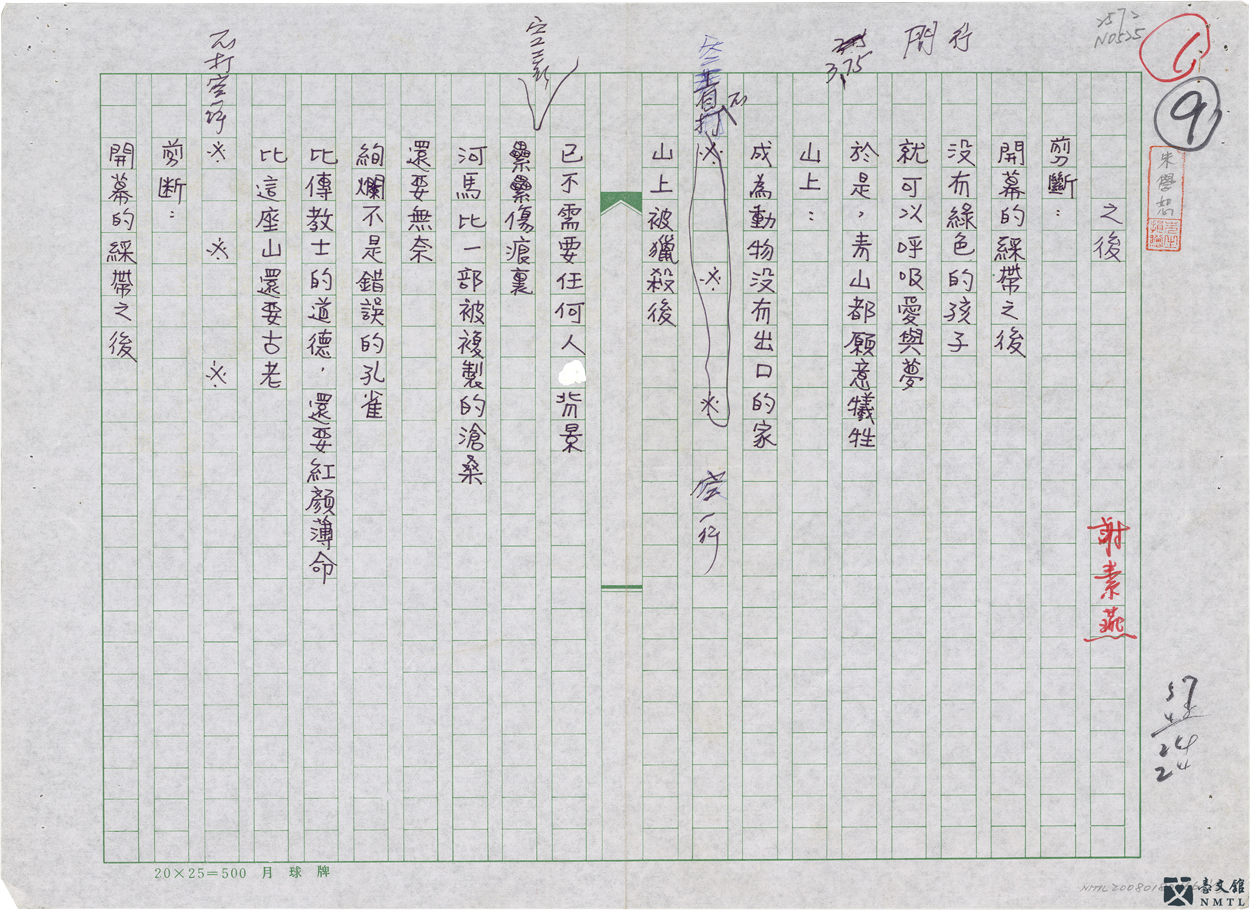 之後
謝素燕
剪斷：
開幕的綵帶之後
沒有綠色的孩子
就可以呼吸愛與夢
於是，青山都願意犧牲
山上：
成為動物沒有出口的家
※ ※ ※
空一行
山上被獵殺後
已不需要任何人背景
纍纍傷痕裏
河馬比一部被複製的滄桑
還要無奈
絢爛不是錯誤的孔雀
比傳教士的道德，還要紅顏薄命
比這座山還要古老
※ ※ ※
剪斷：
開幕的綵帶之後
2572
N0525
1
9
3.75
20×25=500 月球牌
臺文館
NMTL